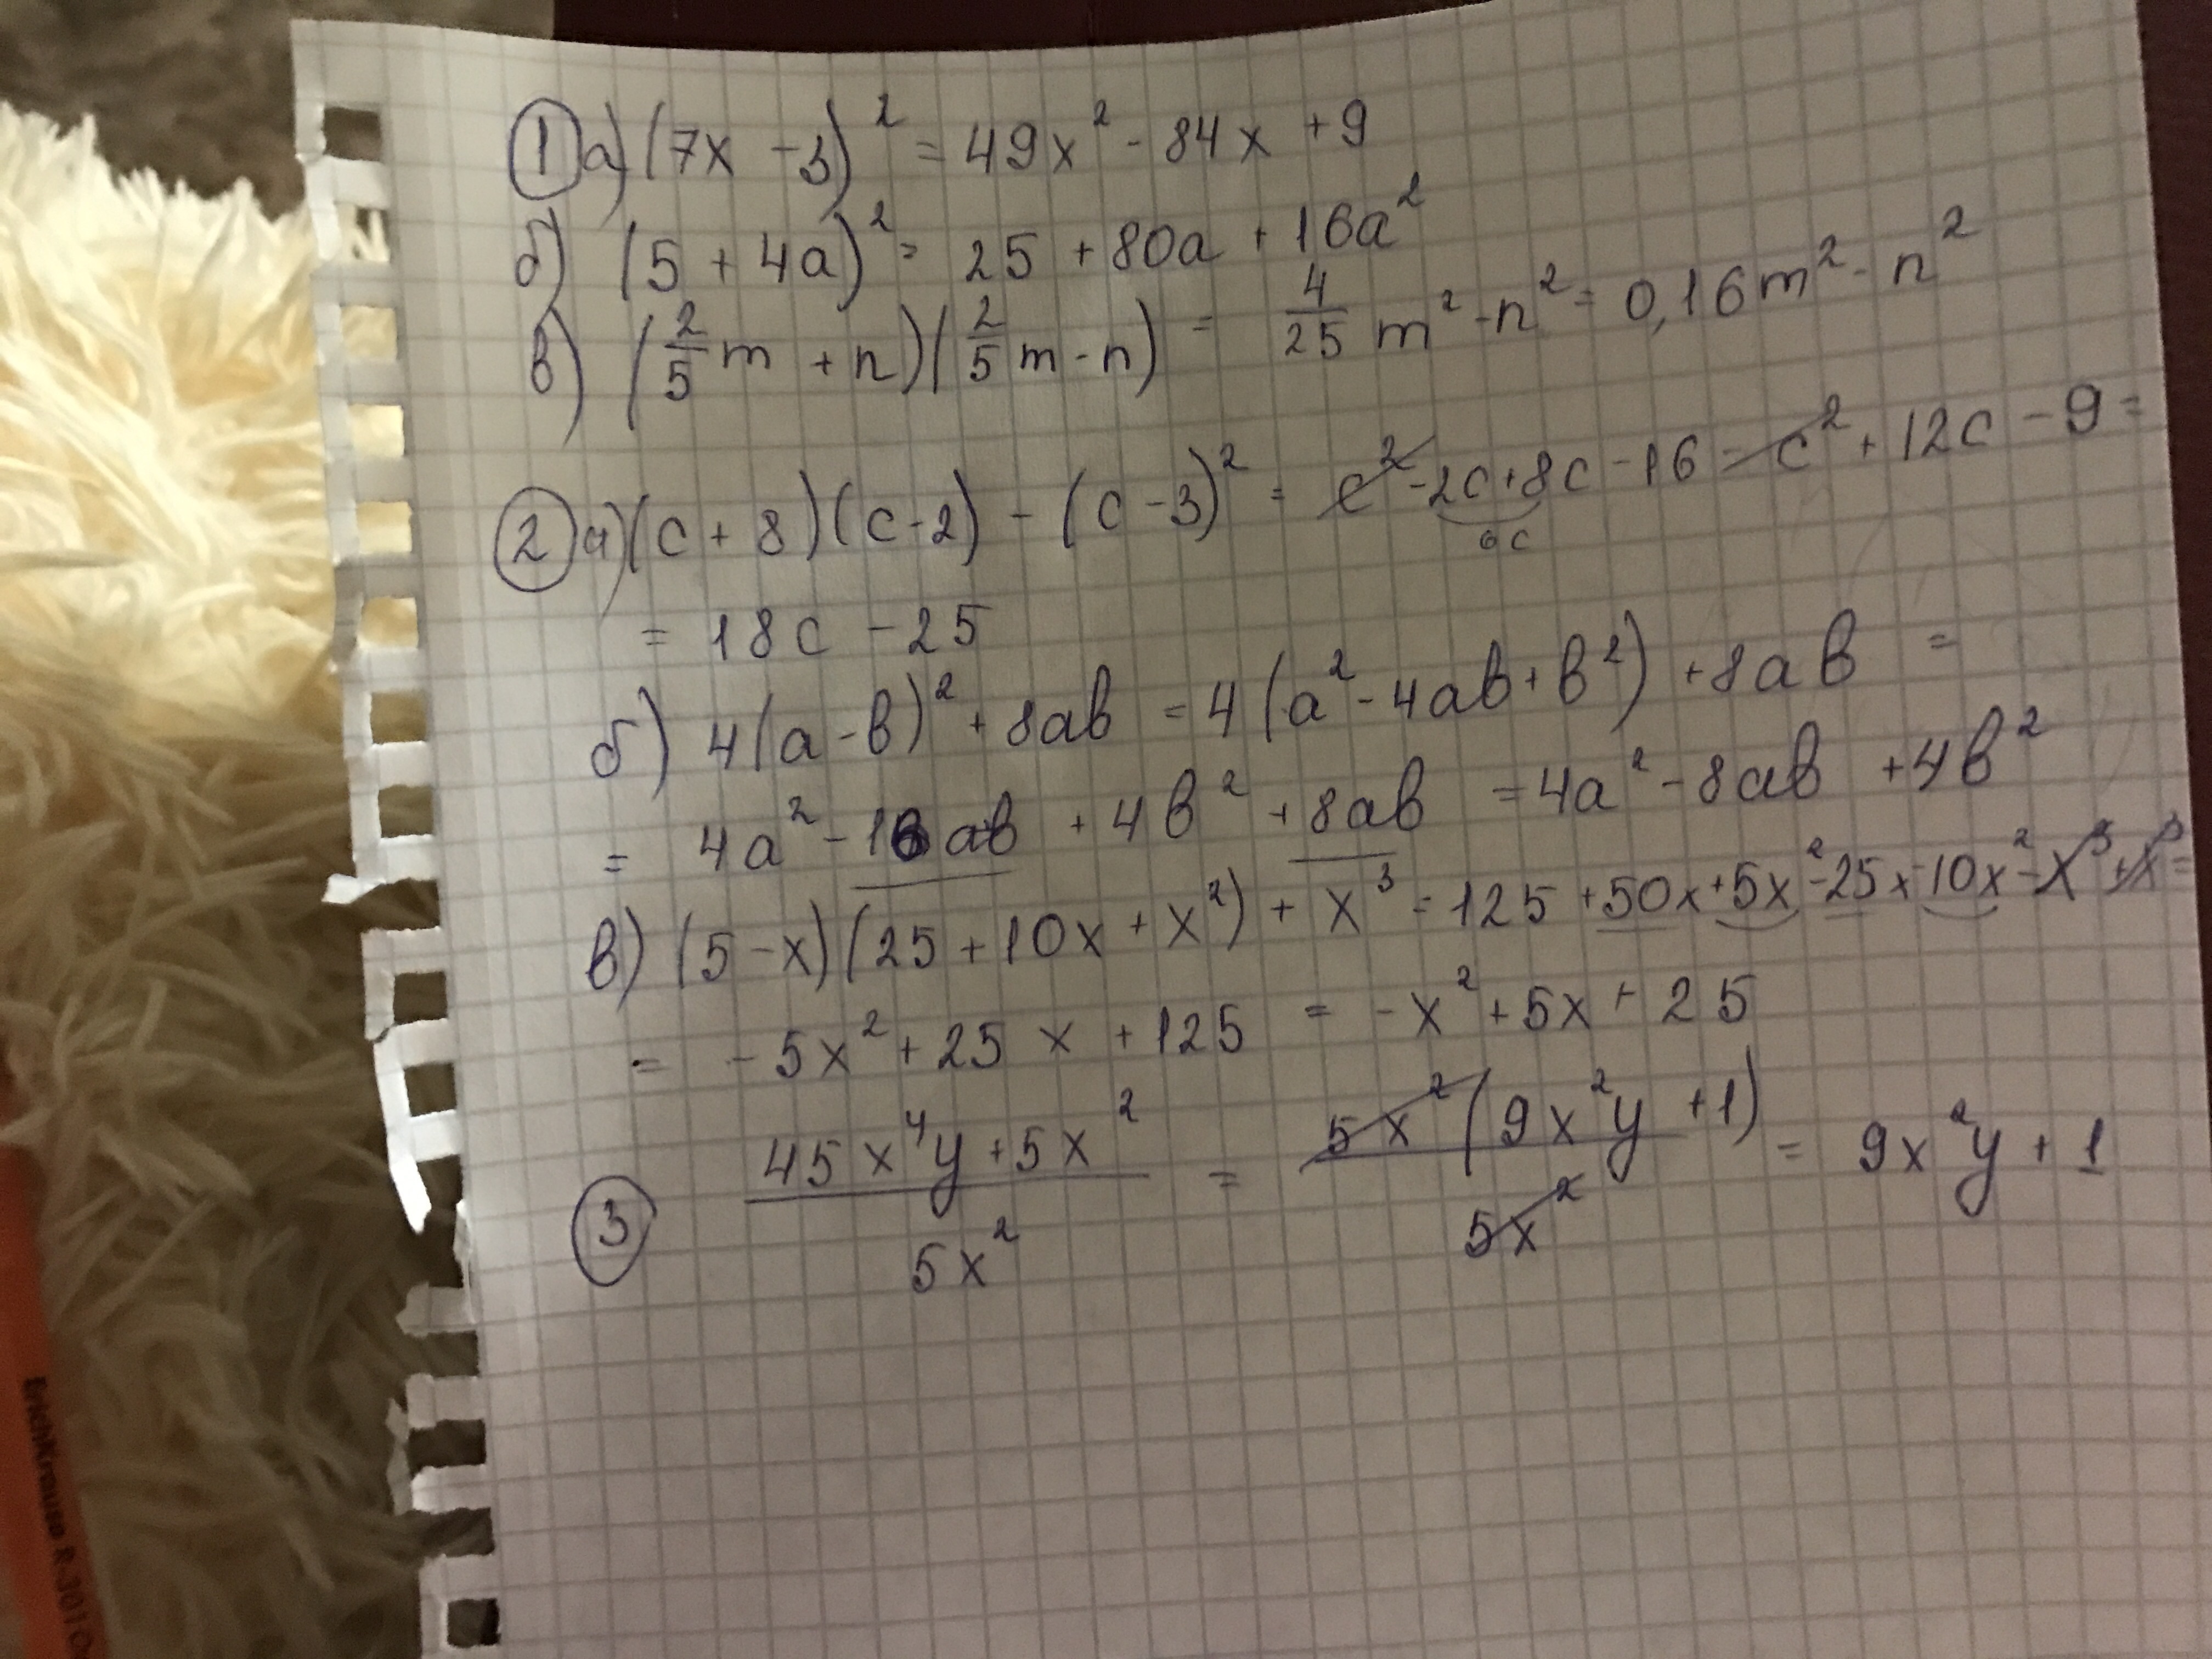 1 а) (7x - 3)² = 49x² - 84x + 9
б) (5 + 4a)² = 25 + 80a + 16a²
в) (2/5 m + n)(2/5 m - n) = 4/25 m² - n² = 0,16m² - n²
2 а) (c + 8)(c - 2) - (c - 3)² = c² - 2c + 8c - 16 - c² + 12c - 9 =
6c
= 18c - 25
б) 4(a - b)² + 8ab = 4(a² - 4ab + b²) + 8ab =
= 4a² - 16ab + 4b² + 8ab = 4a² - 8ab + 4b²
в) (5 - x)(25 + 10x + x²) + x³ = 125 + 50x + 5x² - 25x - 10x² - x³ + x³ =
= - 5x² + 25x + 125 = - x² + 5x + 25
3 (45x⁴y + 5x²)/(5x²) = (5x²(9x²y + 1))/(5x²) = 9x²y + 1
ErichKrause R-301 O